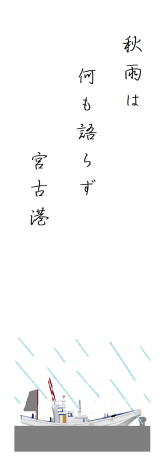 秋雨は
何も語らず
宮古港